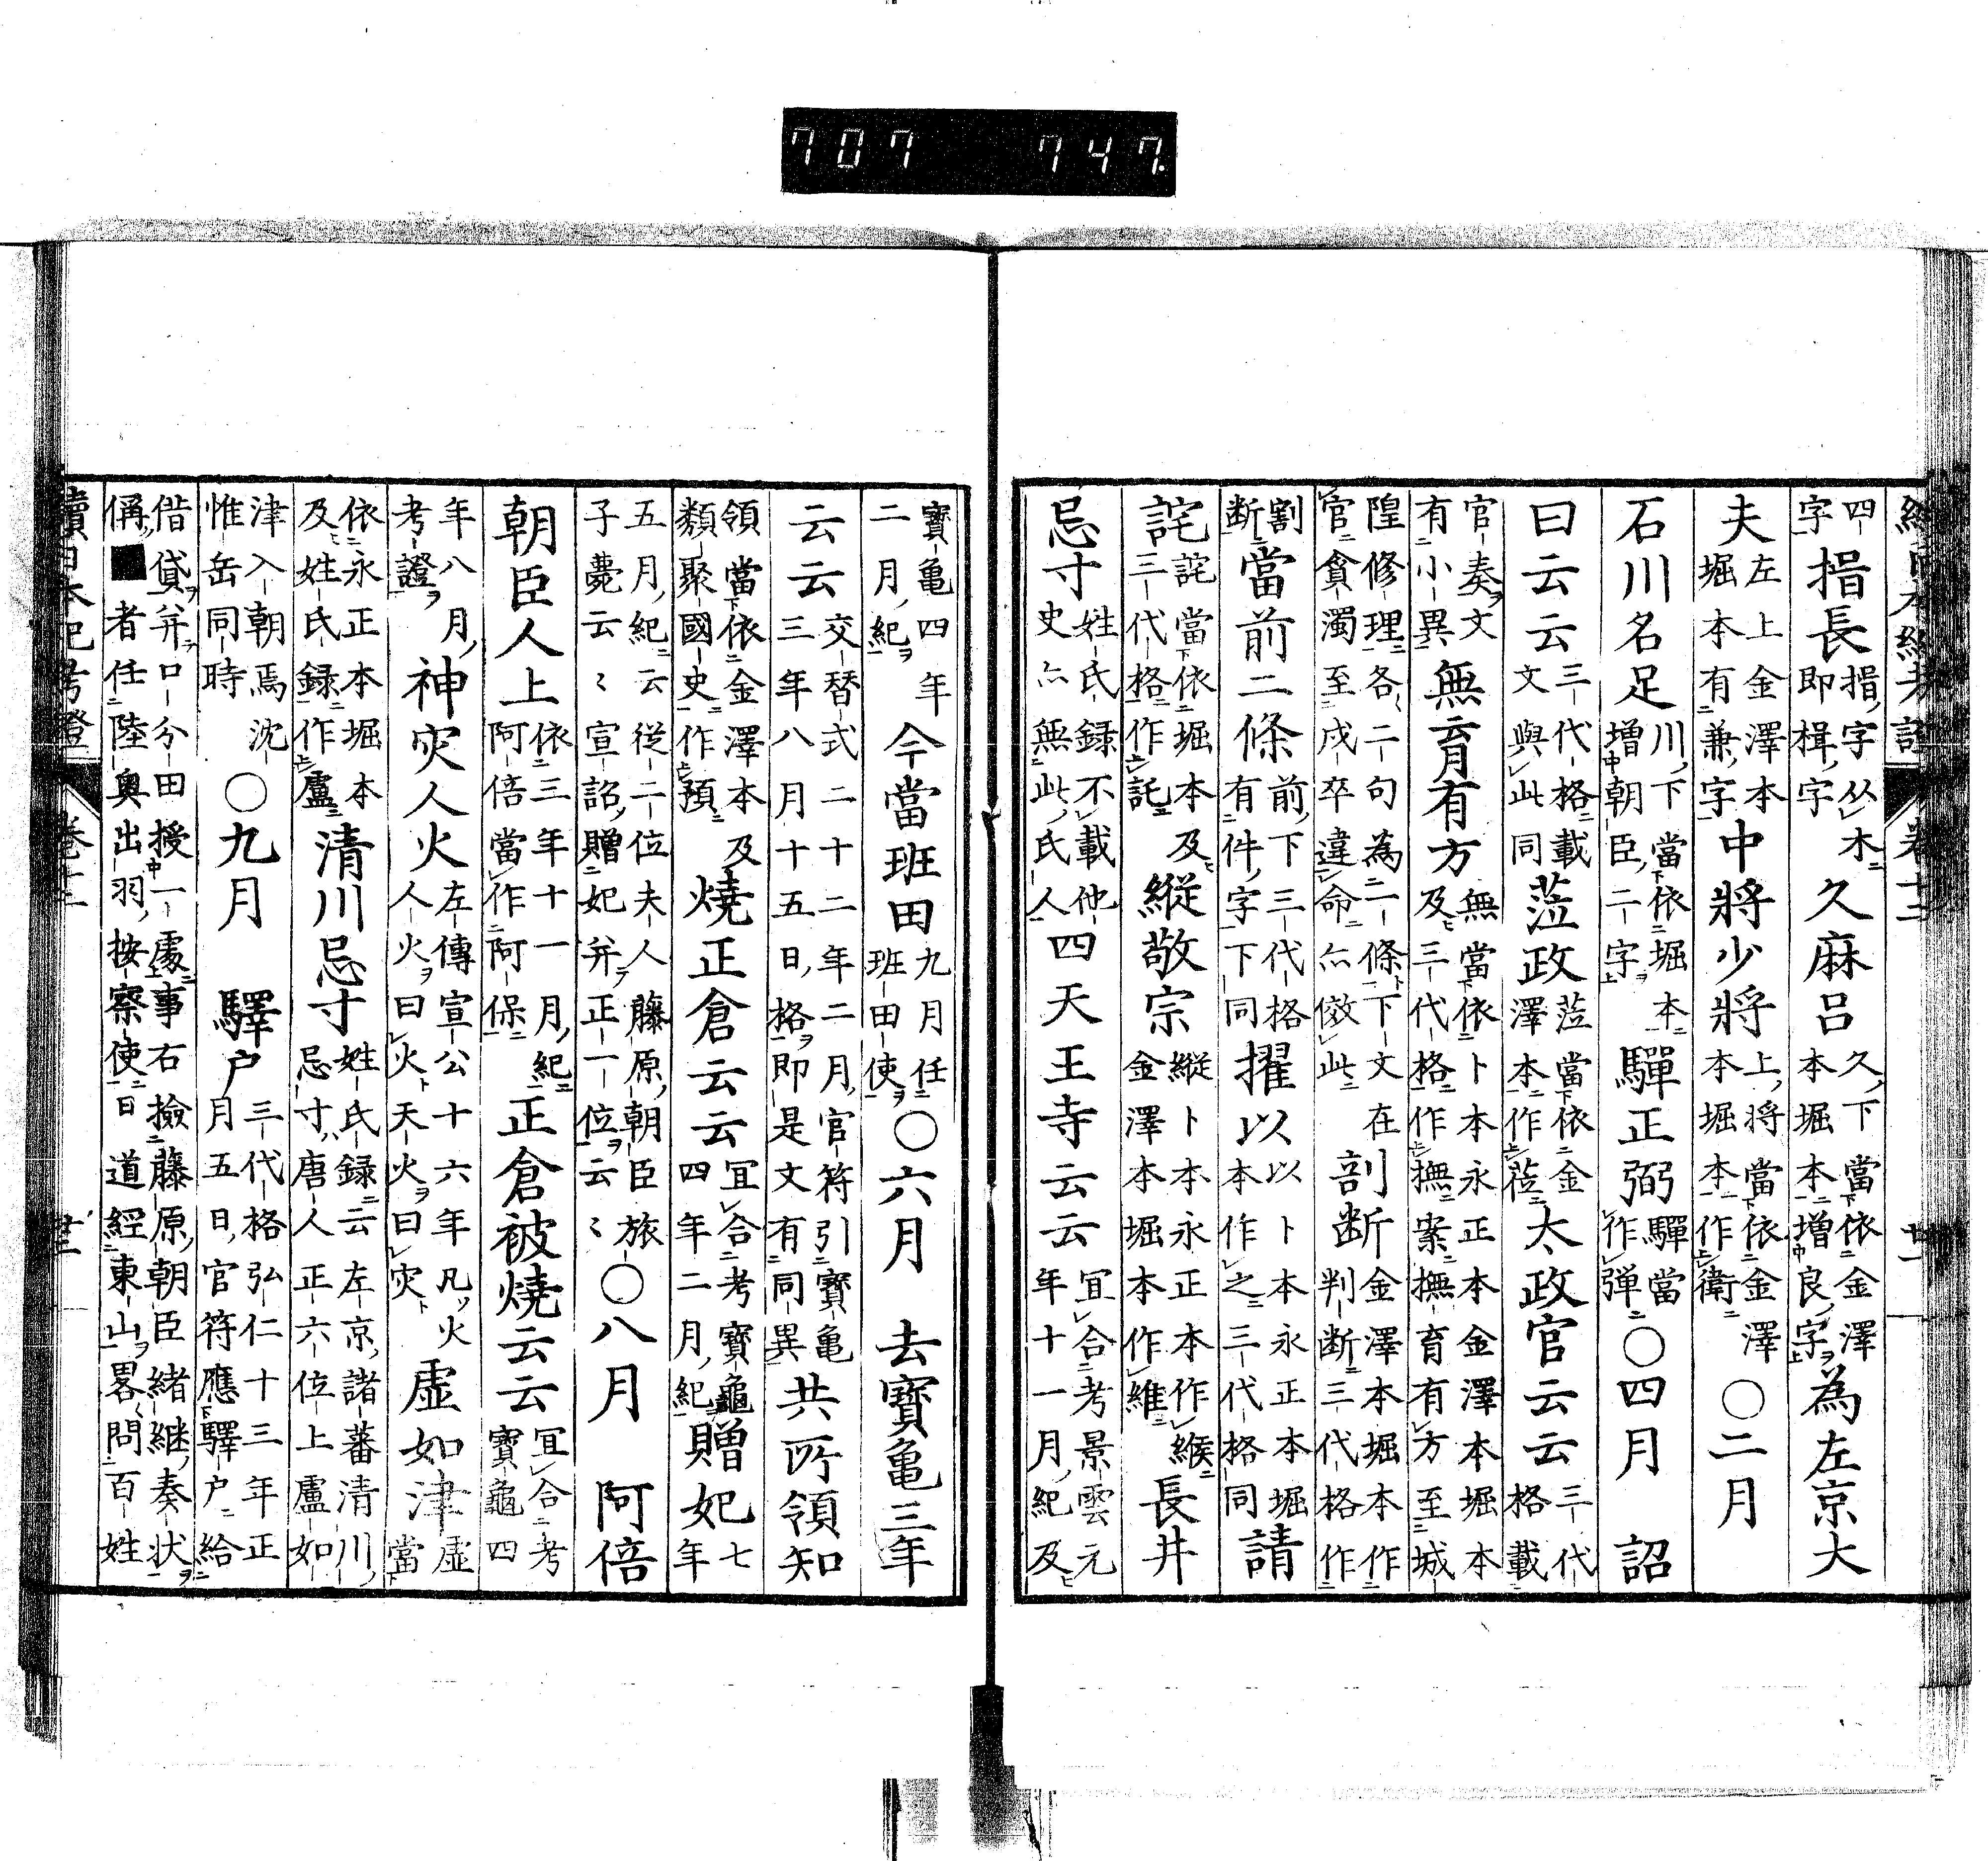 707 747.
續日本紀考證 卷十二 廿一
四字 揩長 揩字从木即楫字 久麻呂 久下當依金澤本堀本增良字 為左京大
夫 左上金澤本堀本有兼字 中將少將 上將當依金澤本堀本作衛 〇二月
石川名足 川下當依堀本增朝臣二字 驒正弼 驒當作彈 〇四月 詔
曰云云 三代格載文與此同 蒞政 蒞當依金澤本作莅 太政官云云 三代格載
官奏文有小異 無育有方 無當依卜本永正本金澤本堀本及三代格作撫案撫育有方至城
隍修理各二句為一條下文在官貪濁至戍卒違命亦傚此 剖断 金澤本堀本作判断三代格作
割断 當前二條 前下三代格有件字下同 擢以 以卜本永正本堀本作之三代格同 請
詫 詫當依堀本及三代格作託 縱敬宗 縱卜本永正本作緱金澤本堀本作維 長井
忌寸 姓氏録不載他史亦無此氏人 四天王寺云云 宜合考景雲元年十一月紀及
寶亀四年二月紀 今當班田 九月任班田使 〇六月 去寶亀三年
云云 交替式二十二年二月官符引寶亀三年八月十五日格即是文有同異 共所領知
領當依金澤本及類聚國史作預 燒正倉云云 宜合考寶龜四年二月紀 贈妃 七年
五月紀云従二位夫人藤原朝臣旅子薨云〻宣詔贈妃并正一位云〻 〇八月 阿倍
朝臣人上 依三年十一月紀阿倍當作阿保 正倉被燒云云 宜合考寶龜四
年八月考證 神灾人火 左傳宣公十六年凡火人火曰火天火曰灾 虛如津 虛當
依永正本堀本及姓氏録作盧 清川忌寸 姓氏録云左京諸蕃清川忌寸唐人正六位上盧如
津入朝焉沈惟岳同時 〇九月 驛户 三代格弘仁十三年正月五日官符應驛户給
借貸并口分田授一處事右撿藤原朝臣緒継奏状偁■者任陸奧出羽按察使日道經東山畧問百姓
續日本紀考證 卷十二 廿二